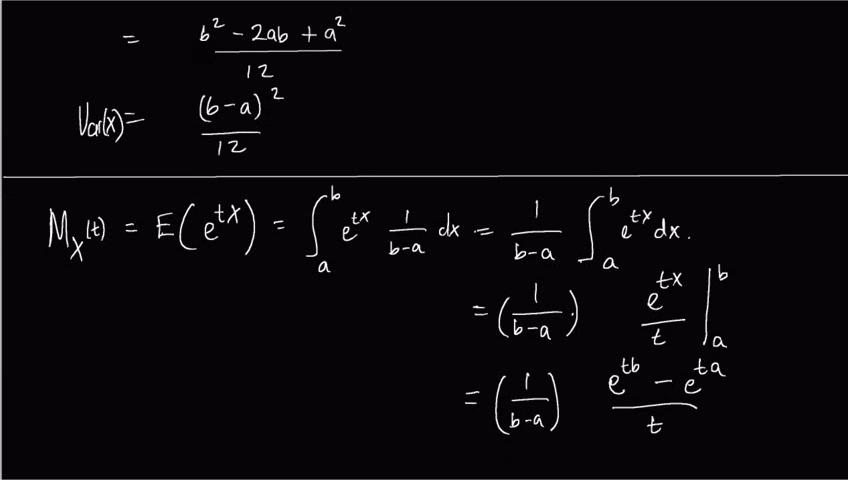 = b² - 2ab + a² / 12
Var(x)= (b-a)² / 12
M_X(t) = E(e^{tX}) = ∫_a^b e^{tx} 1/(b-a) dx = 1/(b-a) ∫_a^b e^{tx} dx.
= (1/(b-a)) e^{tx}/t |_a^b
= (1/(b-a)) (e^{tb} - e^{ta})/t